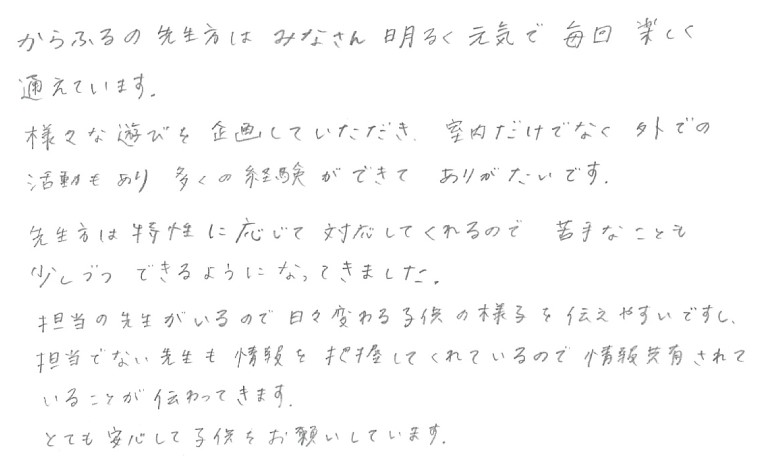 からふるの先生方は みなさん 明るく 元気で 毎回 楽しく
通えています。
様々な遊びを企画していただき、室内だけでなく 外での
活動もあり 多くの経験ができて ありがたいです。
先生方は特性に応じて対応してくれるので 苦手なことも
少しづつ できるようになってきました。
担当の先生がいるので日々変わる子供の様子を伝えやすいですし、
担当でない先生も情報を把握してくれているので情報共有されて
いることが伝わってきます。
とても安心して子供をお願いしています。